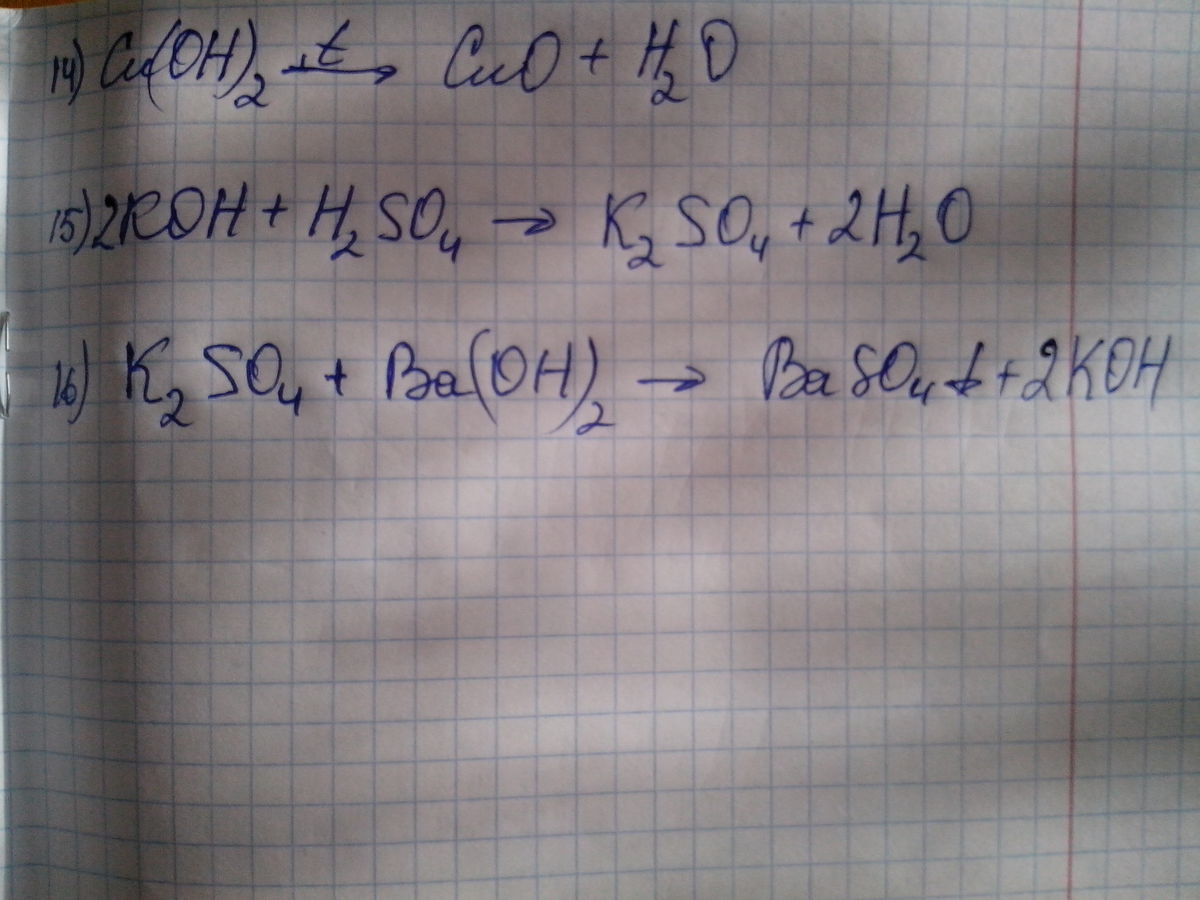 14) Cu(OH)₂ t→ CuO + H₂O
15) 2KOH + H₂SO₄ → K₂SO₄ + 2H₂O
16) K₂SO₄ + Ba(OH)₂ → BaSO₄↓ + 2KOH